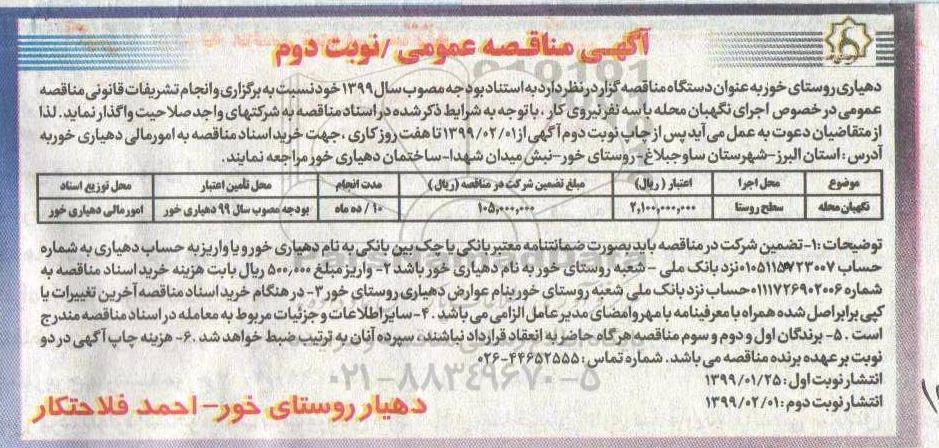 آگهی مناقصه عمومی /نوبت دوم
دهیاری روستای خور به عنوان دستگاه مناقصه گزار در نظر دارد به استناد بودجه مصوب سال ۱۳۹۹ خود نسبت به برگزاری و انجام تشریفات قانونی مناقصه
عمومی در خصوص اجرای نگهبان محله با سه نفر نیروی کار ، با توجه به شرایط ذکر شده در اسناد مناقصه به شرکتهای واجد صلاحیت واگذار نماید. لذا
از متقاضیان دعوت به عمل می آید پس از چاپ نوبت دوم آگهی از ۱۳۹۹/۰۲/۰۱ تا هفت روز کاری ، جهت خرید اسناد مناقصه به امور مالی دهیاری خور به
آدرس : استان البرز-شهرستان ساوجبلاغ- روستای خور-نبش میدان شهدا-ساختمان دهیاری خور مراجعه نمایند.
موضوع محل اجرا اعتبار ( ریال) مبلغ تضمین شرکت در مناقصه (ریال) مدت انجام محل تأمین اعتبار محل توزیع اسناد
نگهبان محله سطح روستا ۲,۱۰۰,۰۰۰,۰۰۰ ۱۰۵,۰۰۰,۰۰۰ ۱۰ / ده ماه بودجه مصوب سال ۹۹ دهیاری خور امور مالی دهیاری خور
توضیحات :۱-تضمین شرکت در مناقصه باید بصورت ضمانتنامه معتبر بانکی یا چک بین بانکی به نام دهیاری خور و یا واریز به حساب دهیاری به شماره
حساب نزد بانک ملی - شعبه روستای خور به نام دهیاری خور باشد ۲- واریز مبلغ ۵۰۰,۰۰۰ ریال بابت هزینه خرید اسناد مناقصه به
شماره ۰۱۱۱۷۲۶۹۰۲۰۰۶ حساب نزد بانک ملی شعبه روستای خور بنام عوارض دهیاری روستای خور ۳- در هنگام خرید اسناد مناقصه آخرین تغییرات با
کپی برابر اصل شده همراه با معرفینامه با مهر و امضای مدیر عامل الزامی می باشد . ۴-سایر اطلاعات و جزئیات مربوط به معامله در اسناد مناقصه مندرج
است . ۵- برندگان اول و دوم و سوم مناقصه هرگاه حاضر به انعقاد قرارداد نباشند ، سپرده آنان به ترتیب ضبط خواهد شد . ۶- هزینه چاپ آگهی در دو
نوبت بر عهده برنده مناقصه می باشد . شماره تماس : ۴۴۶۵۲۵۵۵-۰۲۶
انتشار نوبت اول : ۱۳۹۹/۰۱/۲۵
انتشار نوبت دوم : ۱۳۹۹/۰۲/۰۱
۰۲۱-۸۸۳۴۹۶۷۰-۵
دهیار روستای خور- احمد فلاحتکار